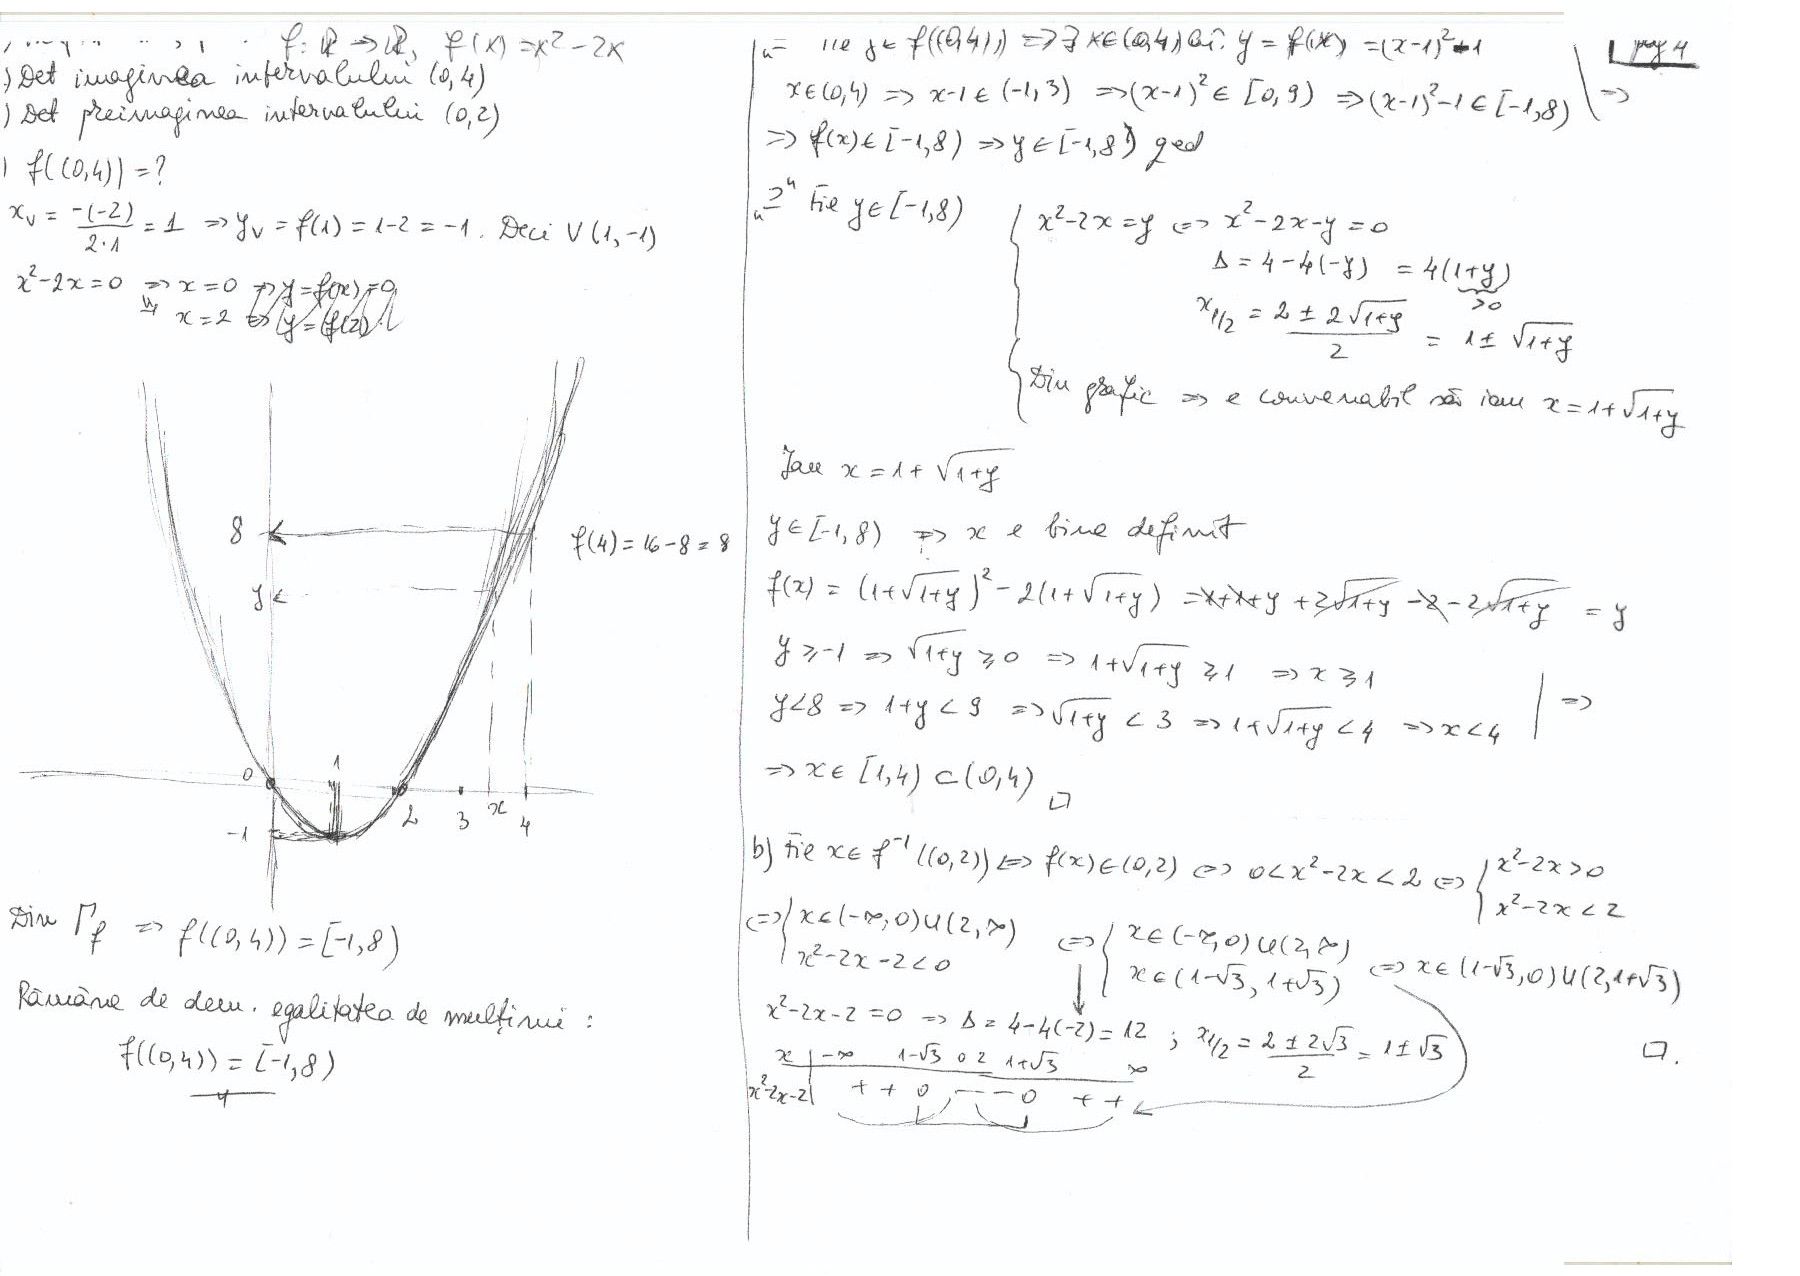 f: ℝ → ℝ, f(x) = x² - 2x
) Det imaginea intervalului (0,4)
) Det preimaginea intervalului (0,2)
) f((0,4)) = ?
x_V = -(-2)/2·1 = 1 ⇒ y_V = f(1) = 1-2 = -1. Deci V(1,-1)
x²-2x=0 ⇒ x=0 ⇒ y=f(x)=0
x=2 ⇒ y=f(2)
8
f(4) = 16-8 = 8
y
0
1
2
3
x
4
-1
Din Γ_f ⇒ f((0,4)) = [-1,8)
Rămâne de dem. egalitatea de mulțimi:
f((0,4)) = [-1,8)
pag 4
"⊂" Fie y ∈ f((0,4)) ⇒ ∃ x∈(0,4) aî. y = f(x) = (x-1)²-1
x∈(0,4) ⇒ x-1 ∈ (-1,3) ⇒ (x-1)² ∈ [0,9) ⇒ (x-1)²-1 ∈ [-1,8) ⇒
⇒ f(x) ∈ [-1,8) ⇒ y ∈ [-1,8) qed
"⊃" Fie y∈[-1,8)
x²-2x=y ⇔ x²-2x-y=0
Δ = 4-4(-y) = 4(1+y)
≥0
x_1/2 = (2 ± 2√(1+y))/2 = 1 ± √(1+y)
Din grafic ⇒ e convenabil să iau x = 1+√(1+y)
Iau x = 1+√(1+y)
y∈[-1,8) ⇒ x e bine definit
f(x) = (1+√(1+y))² - 2(1+√(1+y)) = 1+1+y+2√(1+y) - 2 - 2√(1+y) = y
y ≥ -1 ⇒ √(1+y) ≥ 0 ⇒ 1+√(1+y) ≥ 1 ⇒ x ≥ 1
y<8 ⇒ 1+y < 9 ⇒ √(1+y) < 3 ⇒ 1+√(1+y) < 4 ⇒ x<4 ⇒
⇒ x∈ [1,4) ⊂ (0,4) □
b) Fie x∈ f⁻¹((0,2)) ⇔ f(x)∈(0,2) ⇔ 0<x²-2x<2 ⇔ { x²-2x>0
x²-2x<2
⇔ { x∈(-∞,0)∪(2,∞) ⇔ { x∈(-∞,0)∪(2,∞)
x²-2x-2<0 x∈(1-√3, 1+√3) ⇔ x∈(1-√3,0)∪(2,1+√3)
x²-2x-2=0 ⇒ Δ = 4-4(-2) = 12 ; x_1/2 = (2 ± 2√3)/2 = 1±√3 □.
x | -∞ 1-√3 0 2 1+√3 ∞
x²-2x-2 | + + 0 - - 0 + +